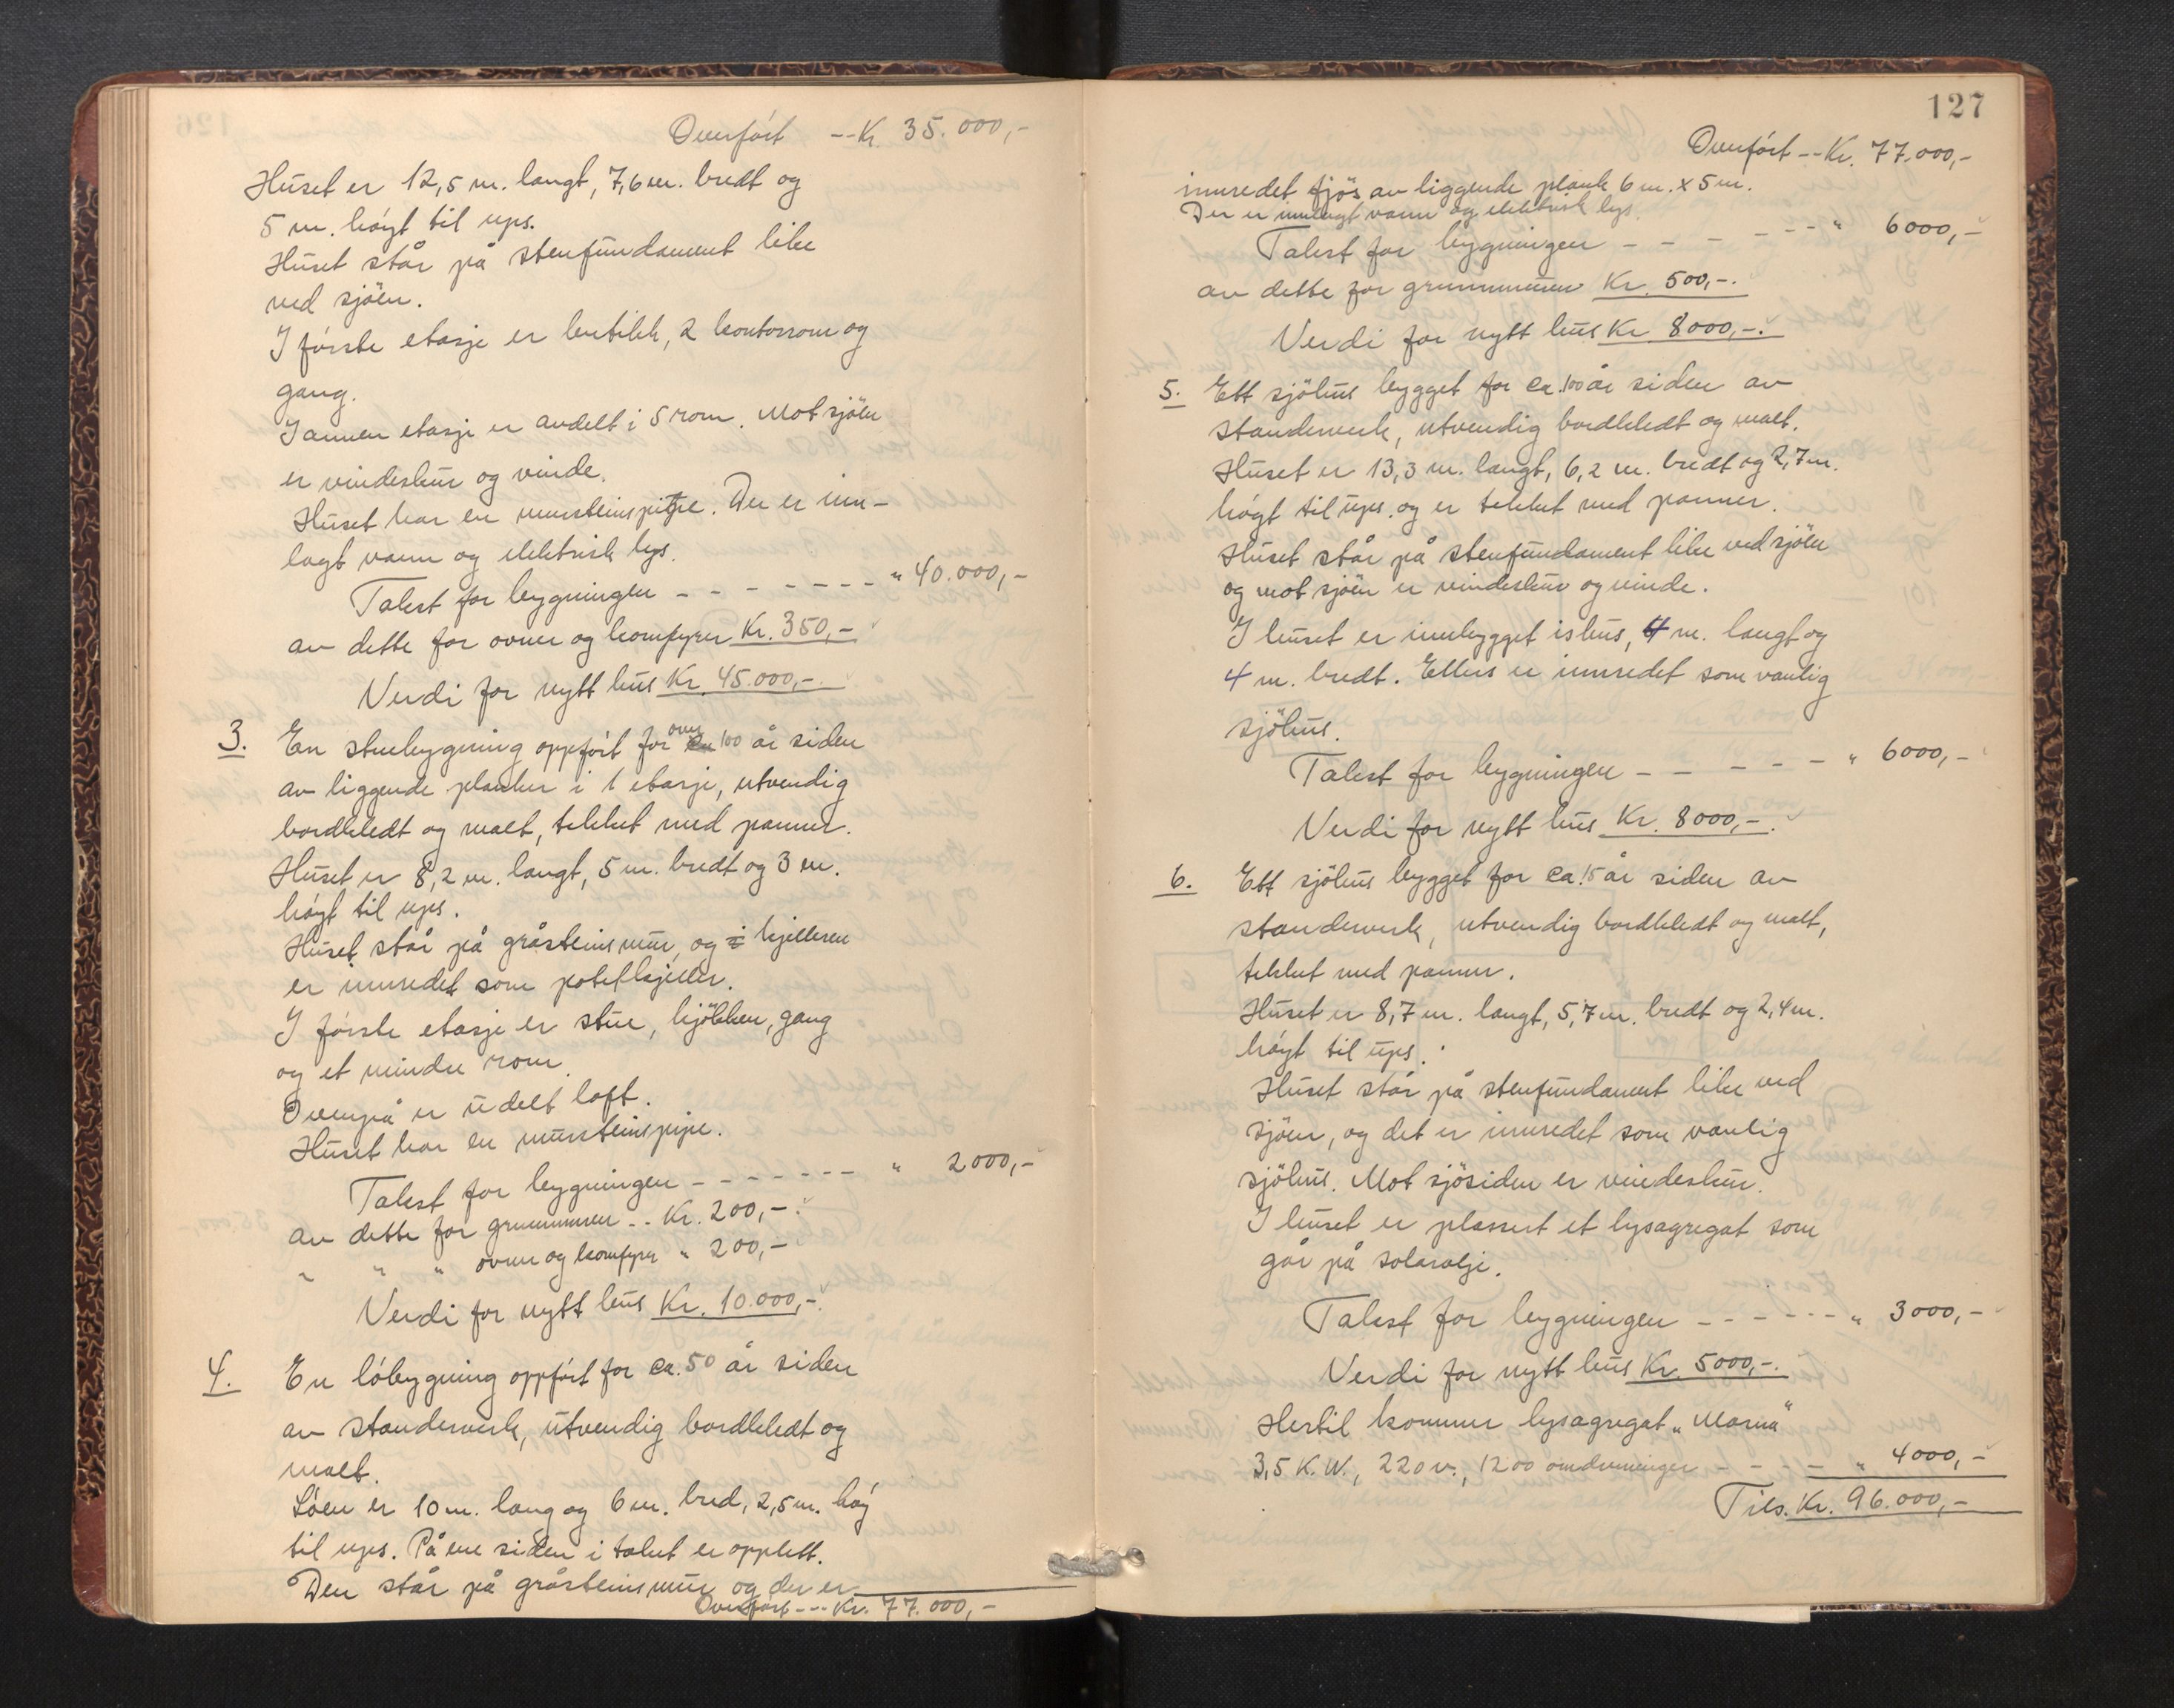 Overfört -- Kr. 35.000,-
Huset er 12,5 m. langt, 7,6 m. bredt og
5 m. höyt til ups.
Huset står på stenfundament like
ved sjöen.
I förste etasje er butikk, 2 kontorrom og
gang.
I annen etasje er avdelt i 5 rom. Mot sjöen
er vindeskur og vinde.
Huset har en mursteinspipe. Der er inn-
lagt vann og elektrisk lys.
Takst for bygningen - - - - - - - - " 40.000,-
av dette for ovner og komfyrer Kr. 350,-
Verdi for nytt hus Kr. 45.000,-.
3. En stuebygning oppfört for over 100 år siden
av liggende planker i 1 etasje, utvendig
bordkledt og malt, tekket med panner.
Huset er 8,2 m. langt, 5 m. bredt og 3 m.
höyt til ups.
Huset står på gråsteinsmur, og i kjelleren
er innredet som potetkjeller.
I förste etasje er stue, kjökken, gang
og et mindre rom.
Ovenpå er udelt loft.
Huset har en mursteinspipe.
Takst for bygningen - - - - - - - " 2000,-
av dette for grunnmuren -- Kr. 200,-
" " " ovner og komfyrer " 200,-
Verdi for nytt hus Kr. 10.000,-.
4. En löbygning oppfört for ca. 50 år siden
av standerverk, utvendig bordkledt og
malt.
Löen er 10 m. lang og 6 m. bred, 2,5 m. höy
til ups. På ene siden i taket er opplett.
Den står på gråsteinsmur og der er
Overfört --- Kr. 77.000,-
127
Overfört -- Kr. 77.000,-
innredet fjös av liggende plank 6 m. x 5 m.
Der er innlagt vann og elektrisk lys.
Takst for bygningen - - - - - - - " 6000,-
av dette for grunnmuren Kr. 500,-.
Verdi for nytt hus Kr. 8000,-.
5. Ett sjöhus bygget for ca. 100 år siden av
standerverk, utvendig bordkledt og malt.
Huset er 13,3 m. langt, 6,2 m. bredt og 2,7 m.
höyt til ups. og er tekket med panner.
Huset står på stenfundament like ved sjöen
og mot sjöen er vindeskur og vinde.
I huset er innbygget ishus, 4 m. langt og
4 m. bredt. Ellers er innredet som vanlig
sjöhus.
Takst for bygningen - - - - - " 6000,-
Verdi for nytt hus Kr. 8000,-.
6. Ett sjöhus bygget for ca. 15 år siden av
standerverk, utvendig bordkledt og malt,
tekket med panner.
Huset er 8,7 m. langt, 5,7 m. bredt og 2,4 m.
höyt til ups.
Huset står på stenfundament like ved
sjöen, og det er innredet som vanlig
sjöhus. Mot sjösiden er vindeskur.
I huset er plassert et lysagregat som
går på solarolje.
Takst for bygningen - - - - - - " 3000,-
Verdi for nytt hus Kr. 5000,-.
Hertil kommer lysagregat "Marna"
3,5 K.W., 220 v., 1200 omdreininger - - - - " 4000,-
Tils. Kr. 96.000,-